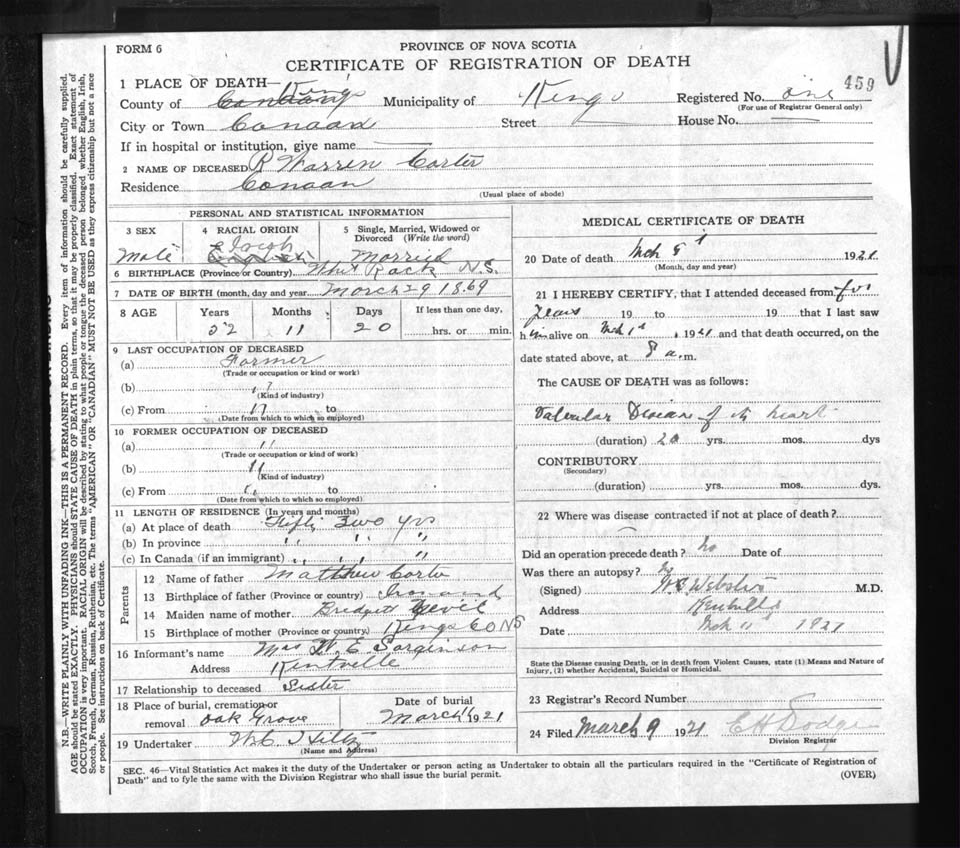 FORM 6
PROVINCE OF NOVA SCOTIA
CERTIFICATE OF REGISTRATION OF DEATH
459
1 PLACE OF DEATH— Kings
County of Municipality of Kings Registered No. one
(For use of Registrar General only)
City or Town Canaan Street House No.
If in hospital or institution, give name
2 NAME OF DECEASED R Warren Carter
Residence Canaan
(Usual place of abode)
PERSONAL AND STATISTICAL INFORMATION
3 SEX 4 RACIAL ORIGIN 5 Single, Married, Widowed or Divorced (Write the word)
Male Irish English Married
6 BIRTHPLACE (Province or Country) White Rock N.S.
7 DATE OF BIRTH (month, day and year) March 29 1869
8 AGE Years Months Days If less than one day,
52 11 20 hrs. or min.
9 LAST OCCUPATION OF DECEASED
(a) Farmer
(Trade or occupation or kind or work)
(b) "
(Kind of industry)
(c) From " to
(Date from which to which so employed)
10 FORMER OCCUPATION OF DECEASED
(a) "
(Trade or occupation or kind or work)
(b) "
(Kind of industry)
(c) From to
(Date from which to which so employed)
11 LENGTH OF RESIDENCE (In years and months)
(a) At place of death Fifty Two yrs
(b) In province " " "
(c) In Canada (if an immigrant) " " "
Parents
12 Name of father Matthew Carter
13 Birthplace of father (Province or country)
14 Maiden name of mother Bridget
15 Birthplace of mother (Province or country) Kings CO NS
16 Informant's name Mrs E. Sarginson
Address Kentville
17 Relationship to deceased Sister
18 Place of burial, cremation or removal Oak Grove
Date of burial March 1921
19 Undertaker
(Name and Address)
MEDICAL CERTIFICATE OF DEATH
20 Date of death Mch 1921
(Month, day and year)
21 I HEREBY CERTIFY, that I attended deceased from for
years 19 to 19 that I last saw
him alive on Mch 1st, 1921 and that death occurred, on the
date stated above, at 8 a.m.
The CAUSE OF DEATH was as follows:
Valvular Disease of the heart
(duration) 20 yrs. mos. dys
CONTRIBUTORY
(Secondary)
(duration) yrs. mos. dys.
22 Where was disease contracted if not at place of death?
Did an operation precede death? No Date of
Was there an autopsy? No
(Signed) Webster M.D.
Address Kentville
Date Mch 11 1921
State the Disease causing Death, or in death from Violent Causes, state (1) Means and Nature of
Injury, (2) whether Accidental, Suicidal or Homicidal.
23 Registrar's Record Number
24 Filed March 9 1921 E H Dodge
Division Registrar
SEC. 46—Vital Statistics Act makes it the duty of the Undertaker or person acting as Undertaker to obtain all the particulars required in the "Certificate of Registration of
Death" and to fyle the same with the Division Registrar who shall issue the burial permit.
(OVER)
N.B.—WRITE PLAINLY WITH UNFADING INK—THIS IS A PERMANENT RECORD. Every item of information should be carefully supplied.
AGE should be stated EXACTLY. PHYSICIANS should STATE CAUSE OF DEATH in plain terms, so that it may be properly classified. Exact statement of
OCCUPATION is very important. RACIAL ORIGIN will be described by stating to what people or tongue the deceased person belonged whether English, Irish,
Scotch, French, German, Russian, Ruthenian, etc. The terms "AMERICAN" OR "CANADIAN" MUST NOT BE USED as they express citizenship but not a race
or people. See instructions on back of Certificate.